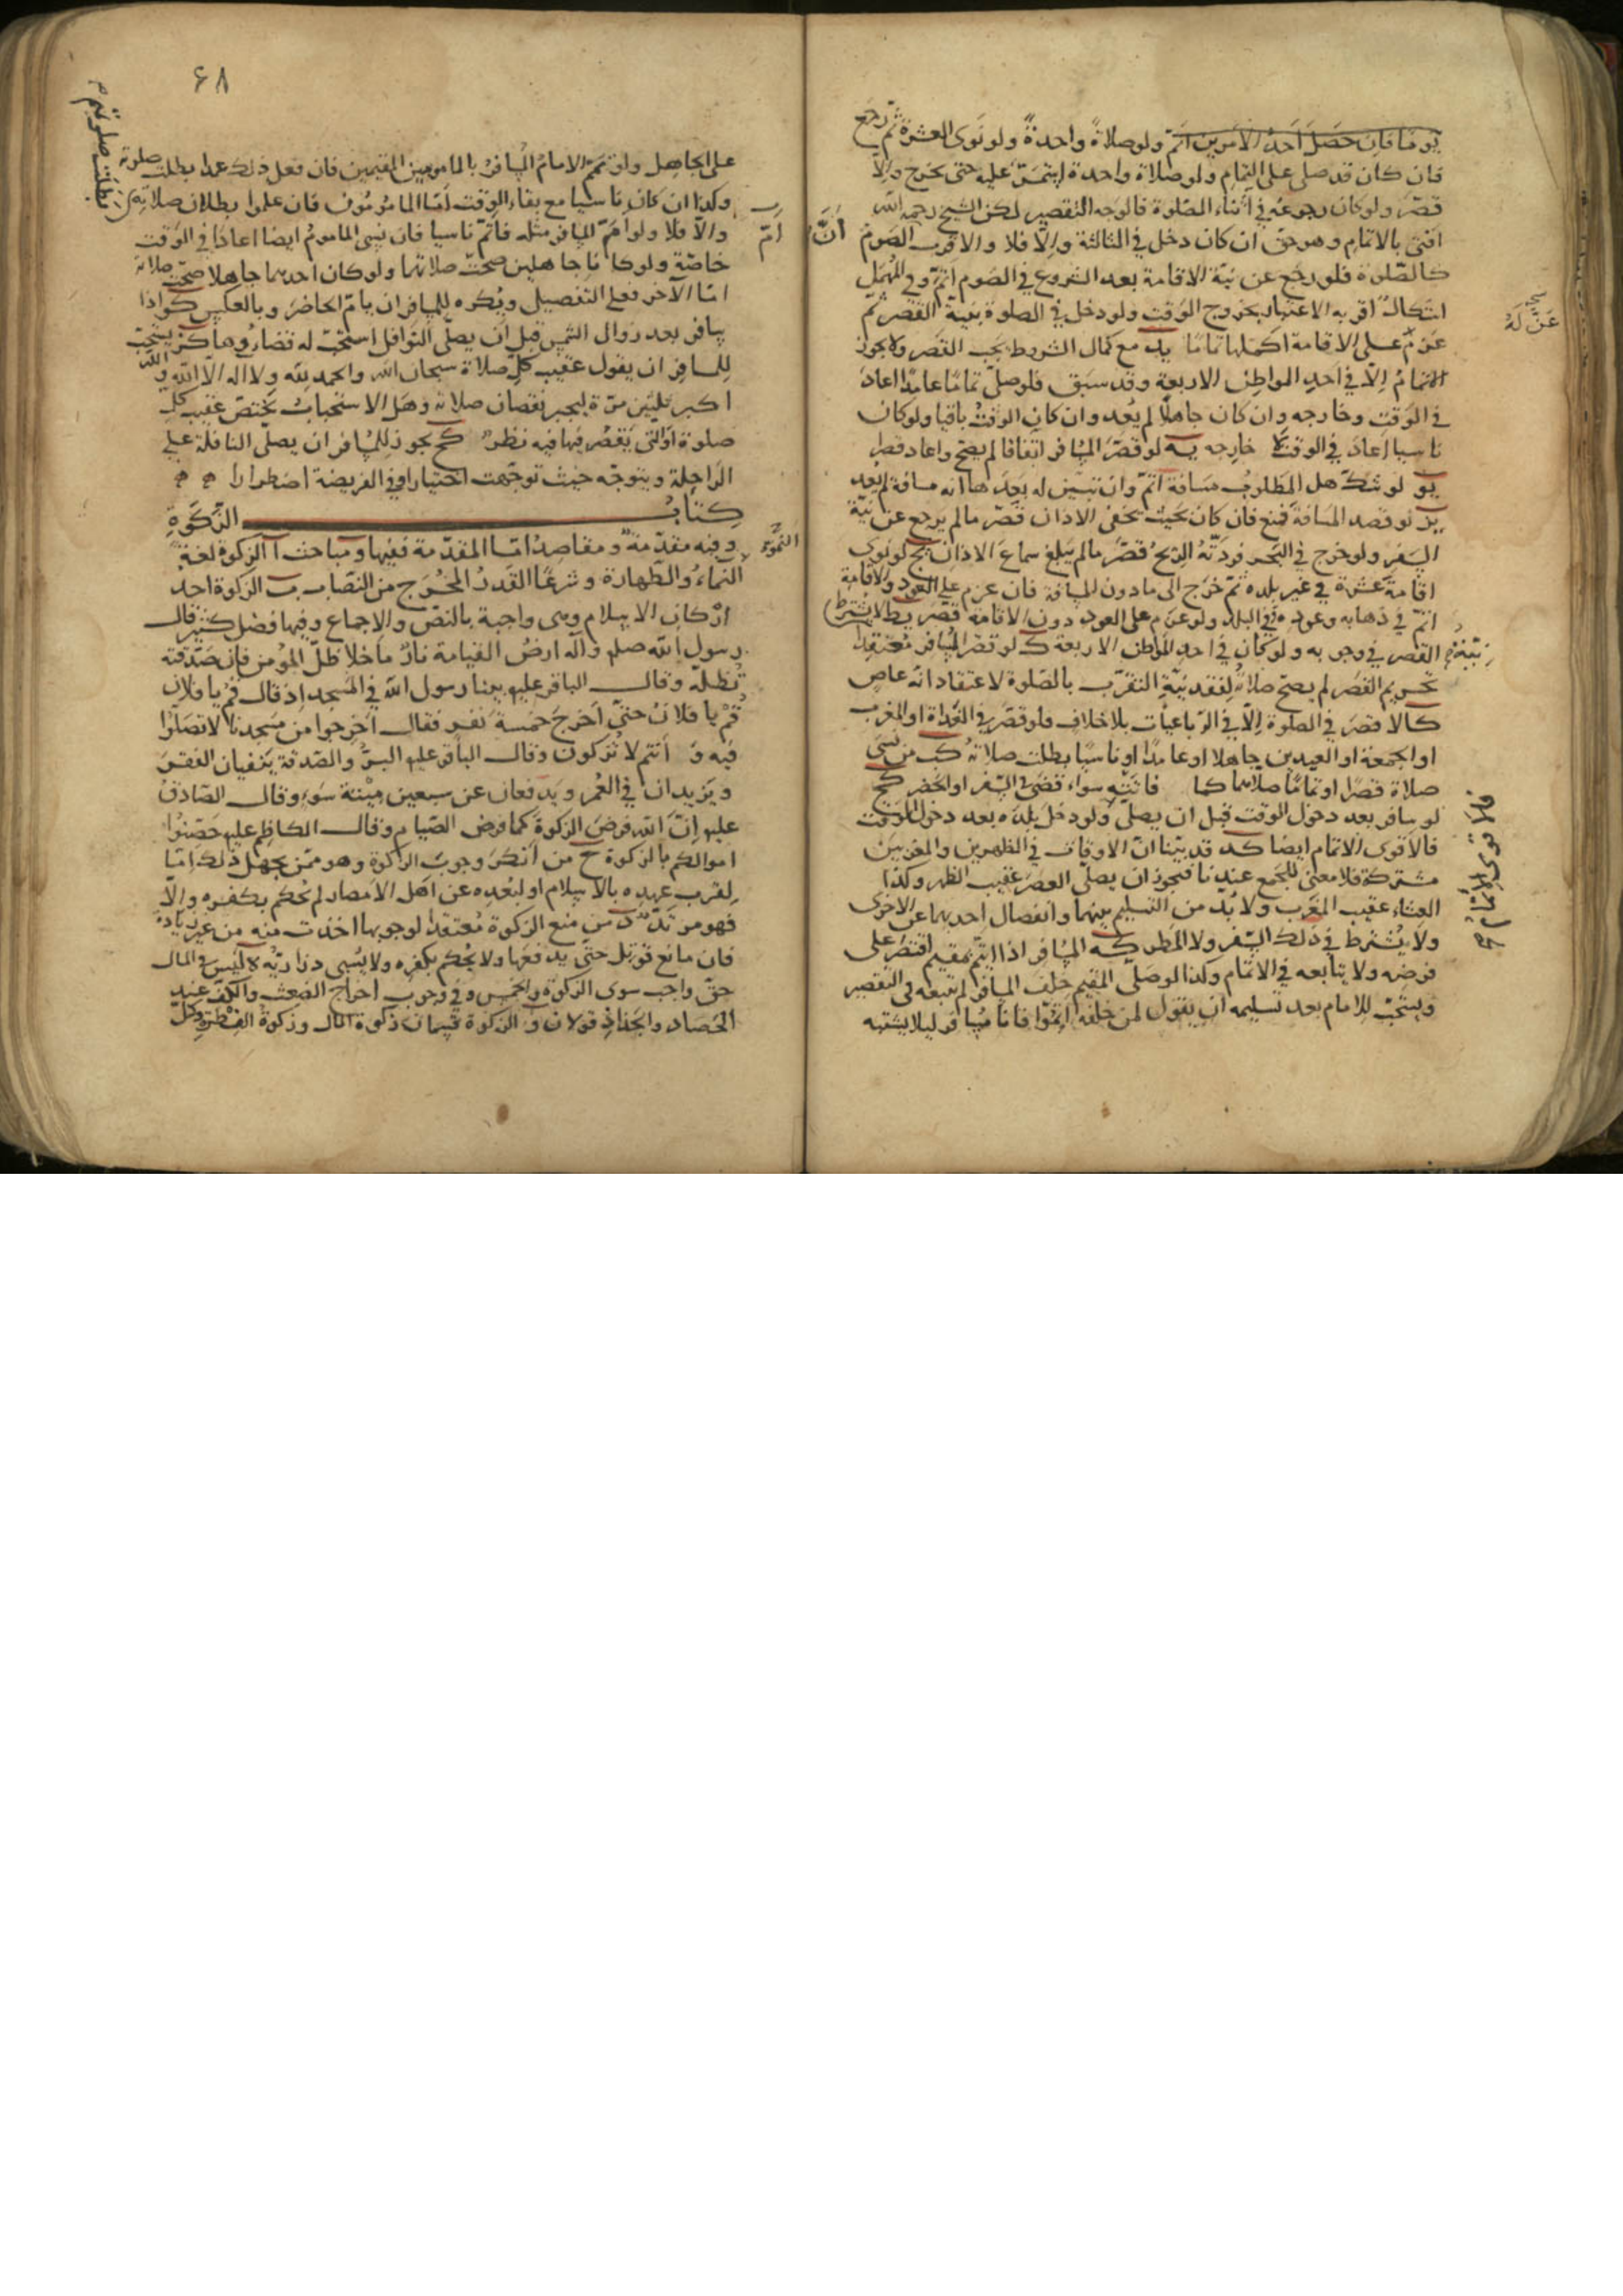 يوما فان حصل احد الامرين اتم ولو صلاةً واحدةً ولو نوى العشرة ثم رجع
فان كان قد صلى على التمام ولو صلاة واحدة استمر عليه حتى يخرج والا
قصّر ولو كان رجوعه في اثناء الصلوة فالوجه التقصير لكن الشيخ رحمه الله
افتى بالاتمام وهو حق ان كان دخل في الثالثة والا فلا والاقرب ان الصوم
كالصلوة فلو رجع عن نية الاقامة بعد الشروع في الصوم اتم وفي المهمل
اشكالٌ اقربه الاعتبار بخروج الوقت ولو دخل في الصلوة بنية القصر ثم
عنّ له
عزم على الاقامة اكملها تماما يد مع كمال الشروط يجب القصر ولا يجوز
الاتمام الا في احد المواطن الاربعة وقد سبق فلو صلى تماما عامدا اعاد
في الوقت وخارجه وان كان جاهلا لم يعد وان كان الوقت باقيا ولو كان
ناسيا اعاد في الوقت لا خارجه يه لو قصّر المسافر اتفاقا لم يصح واعاد قصرا
يو لو شك هل المطلوب مسافة اتم وان تبين له بعدها انه مسافة لم يعد
يز لو قصد المسافة فمنع فان كان بحيث يخفى الاذان قصّر ما لم يرجع عن نية
السفر ولو خرج في البحر فردته الريح قصّر ما لم يبلغ سماع الاذان يح لو نوى
اقامة عشرة في غير بلده ثم خرج الى ما دون المسافة فان عزم على العود والاقامة
اتم في ذهابه وعوده وفي البلد ولو عزم على العود دون الاقامة قصّر يط لا يشترط
نيّة القصر في وجوبه ولو كان في احد المواطن الاربعة ك لو قصّر المسافر معتقدا
تحريم القصر لم يصح صلاته لفقد نية التقرب بالصلوة لاعتقاد انه عاص
كا لا قصر في الصلوة الا في الرباعيات بلا خلاف فلو قصّر في الغداة او المغرب
او الجمعة او العيدين جاهلا او عامدا او ناسيا بطلت صلاته كب من نسى
صلاة قصرا او تماما صلاها كما فاتته سواء قضى في السفر او الحضر كج
لو سافر بعد دخول الوقت قبل ان يصلي ولو دخل بلده بعد دخول الوقت
فالاقوى الاتمام ايضا كد قد بينا ان الاوقات في الظهرين والمغربين
مشتركة فلا معنى للجمع عندنا فيجوز ان يصلي العصر عقيب الظهر وكذا
العشاء عقيب المغرب ولا بد من التسليم بينهما وانفصال احديهما عن الاخرى
ولا يشترط في ذلك السفر ولا المطر كه المسافر اذا ايتم بمقيم اقتصر على
فرضه ولا يتابعه في الاتمام وكذا لو صلى المقيم خلف المسافر لم يتبعه في التقصير
ويستحب للامام بعد تسليمه ان يقول لمن خلفه اتموا فانا مسافر ليلا يشتبه
٦٨
على الجاهل ولو تمم الامام المسافر بالمامومين المقيمين فان فعل ذلك عمدا بطلت صلوته
وكذا ان كان ناسيا مع بقاء الوقت امّا المامومون فان علموا بطلان صلاته بطلت صلوتهم
والا فلا ولو امّ المسافر مثله فاتم ناسيا فان نسى الماموم ايضا اعادا في الوقت
خاصّة ولو كانا جاهلين صحت صلاتهما ولو كان احدهما جاهلا صحت صلاته
امّا الآخر فعلى التفصيل ويكره للمسافر ان يامّ الحاضر وبالعكس كو اذا
سافر بعد زوال الشمس قبل ان يصلي النوافل استحب له قضاؤها كز يستحب
للمسافر ان يقول عقيب كل صلاة سبحان الله والحمد لله ولا اله الا الله والله
اكبر ثلثين مرّة ليجبر نقصان صلاته وهل الاستحباب يختص عقيب كل
صلوة او التي يقصر فيها فيه نظر كح يجوز للمسافر ان يصلي النافلة على
الراحلة ويتوجّه حيث توجّهت اختيارا وفي الفريضة اضطرارا
كتاب الزكوة
وفيه مقدّمة ومقاصد امّا المقدّمة ففيها مباحث آ الزكوة لغة النموّ
النماء والطهارة وشرعا القدر المخرج من النصاب ب الزكوة احد
اركان الاسلام وهى واجبة بالنصّ والاجماع وفيها فضل كثير قال
رسول الله صلم وآله ارض القيامة نار ما خلا ظلّ المؤمن فان صدقته
تظلّه وقال الباقر عليه بينا رسول الله في المسجد اذ قال قم يا فلان
قم يا فلان حتى اخرج خمسة نفر فقال اخرجوا من مسجدنا لا تصلّوا
فيه و انتم لا تزكون وقال الباقر عليه البرّ والصدقة ينفيان الفقر
ويزيدان في العمر ويدفعان عن سبعين ميتة سوء وقال الصادق
عليه انّ الله فرض الزكوة كما فرض الصيام وقال الكاظم عليه حصّنوا
اموالكم بالزكوة ج من انكر وجوب الزكوة وهو ممن يجهل ذلك امّا
لقرب عهده بالاسلام او لبعده عن اهل الامصار لم يحكم بكفره والا
فهو مرتدّ د من منع الزكوة معتقدا لوجوبها اخذت منه من غير زيادة
فان مانع قوتل حتى يدفعها ولا يحكم بكفره ولا يسبى ذراريّه ه ليس في المال
حق واجب سوى الزكوة والخمس وفي وجوب اخراج الضغث والكفّ عند
الحصاد والجذاذ قولان و الزكوة قسمان زكوة المال وزكوة الفطرة وكل